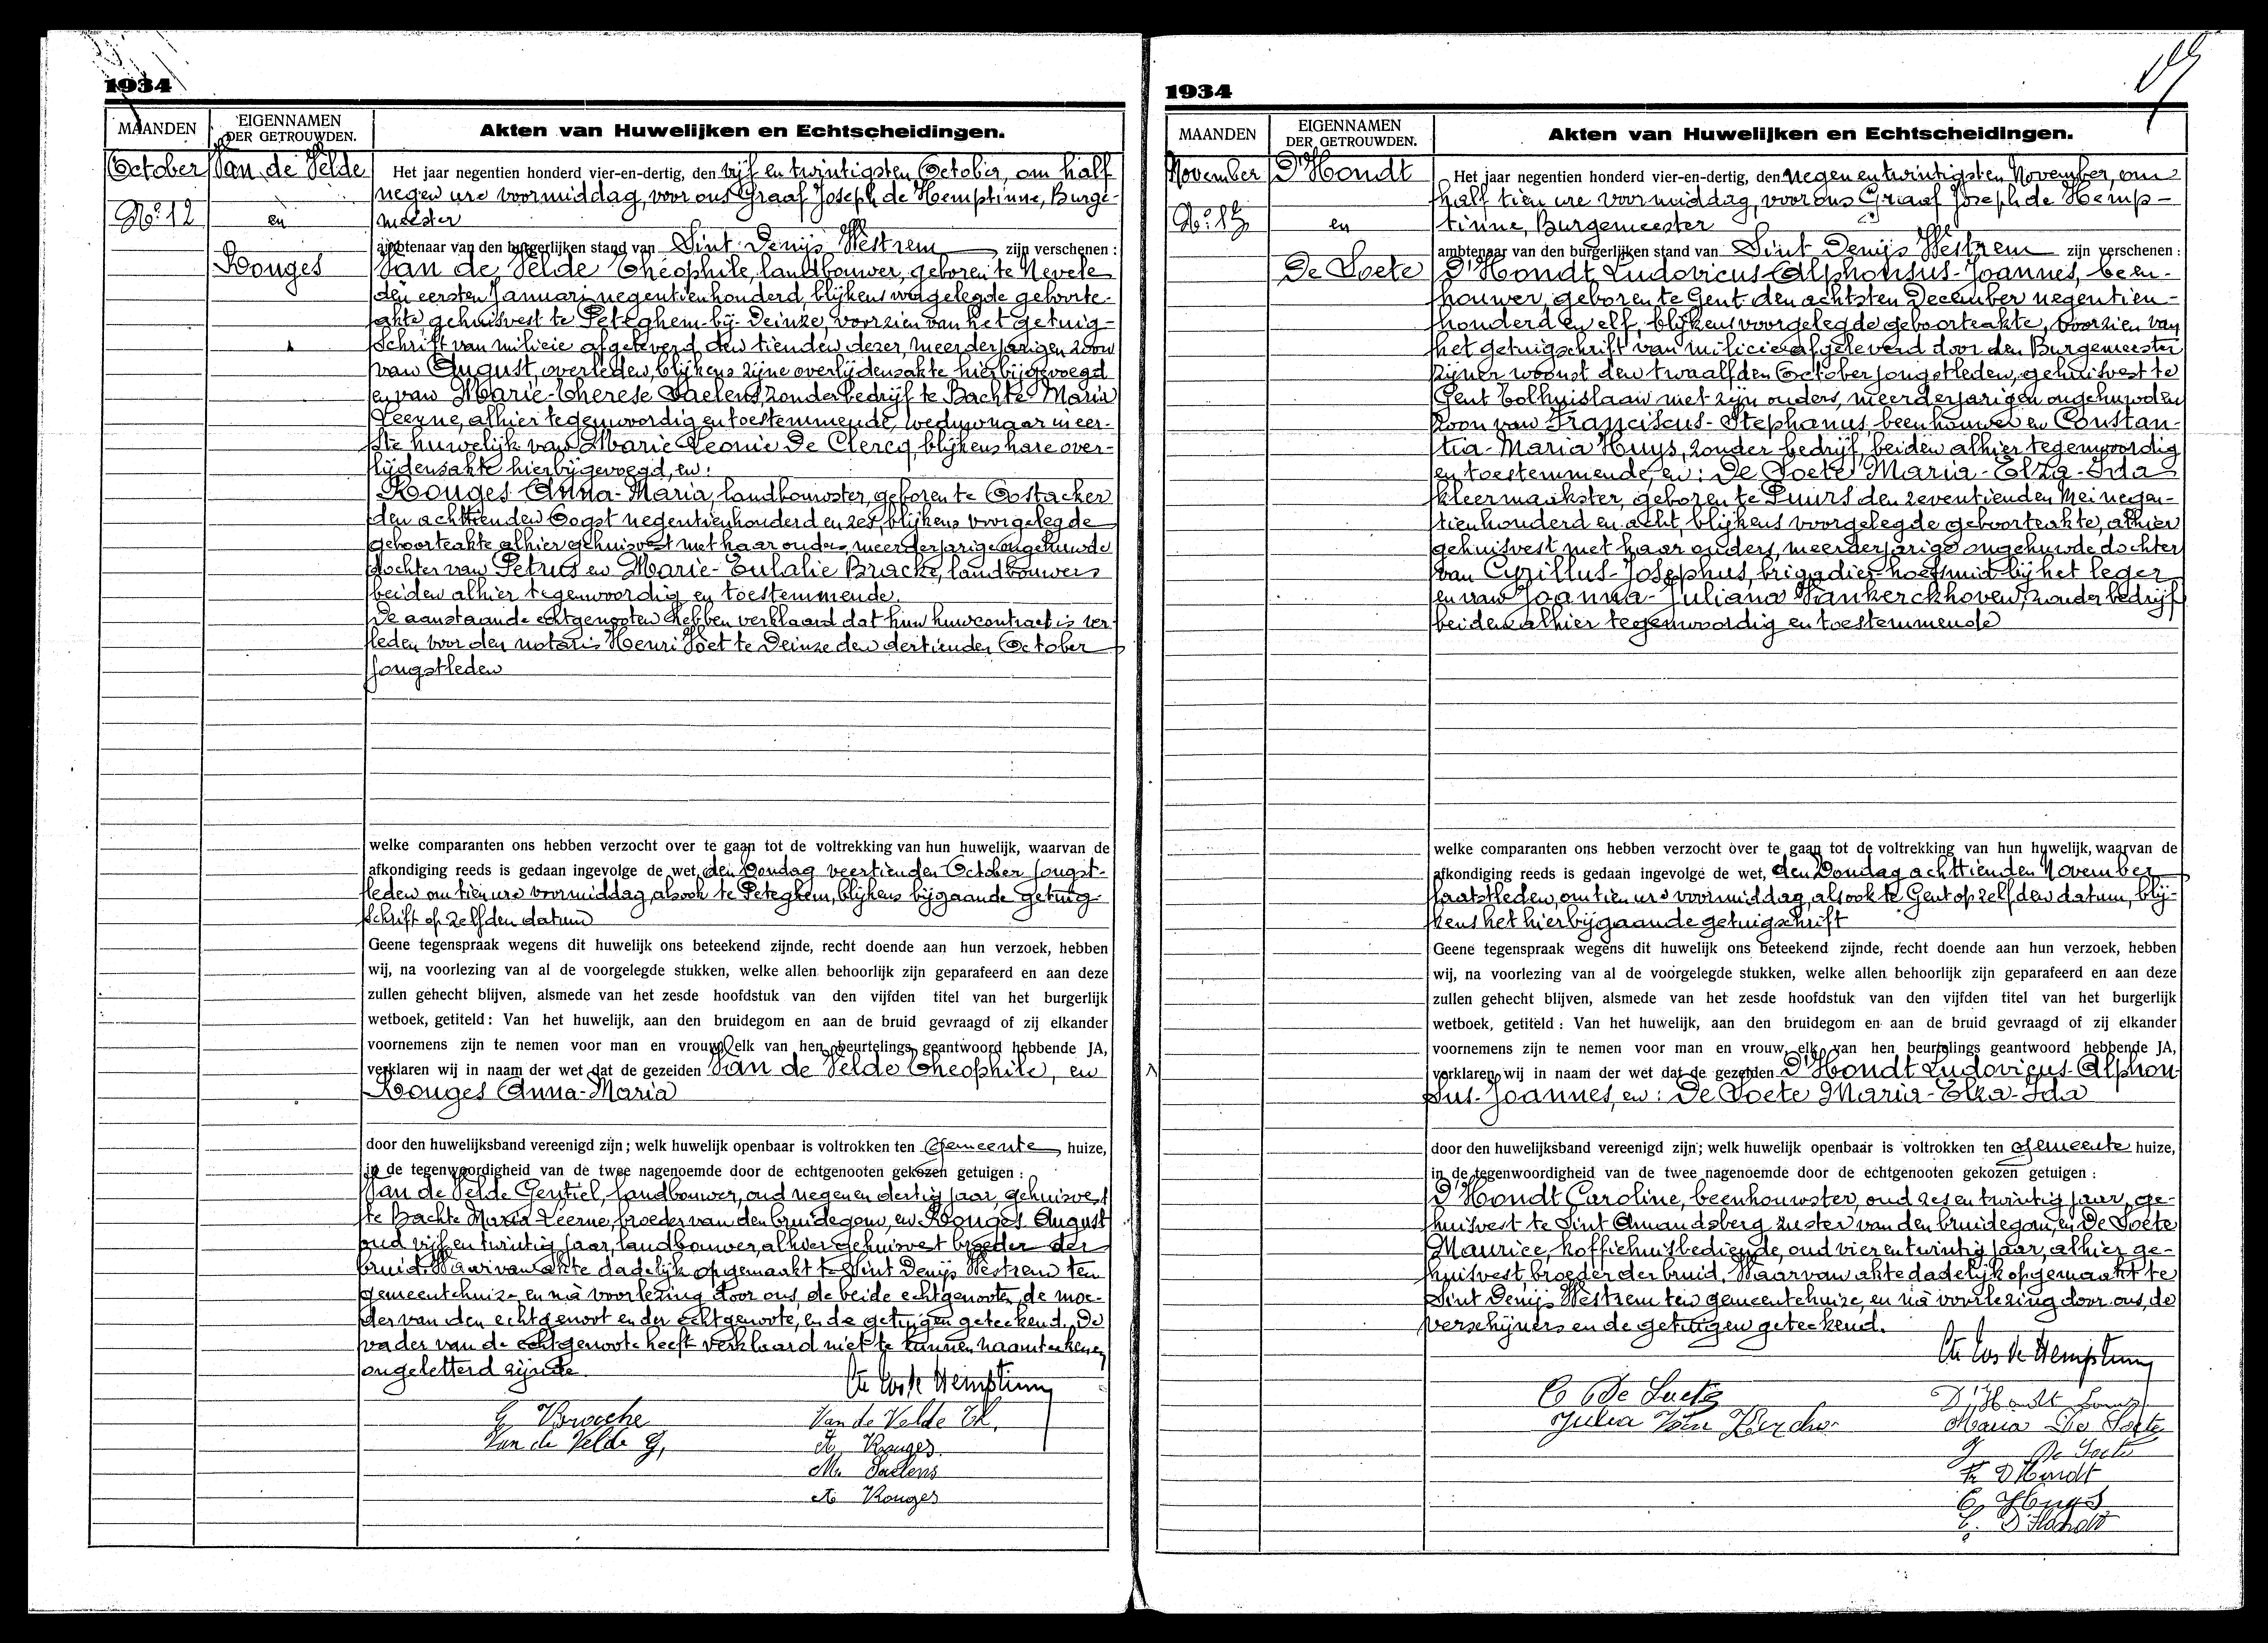 1934
MAANDEN
EIGENNAMEN
DER GETROUWDEN.
Akten van Huwelijken en Echtscheidingen.
October
No. 12
Van de Velde
en
Rouges
Het jaar negentien honderd vier-en-dertig, den vijf en twintigsten October, om half
negen ure voormiddag, voor ons Graaf Joseph de Hemptinne, Burge-
meester
ambtenaar van den burgerlijken stand van Sint Denijs Westrem zijn verschenen :
Van de Velde Theophile, landbouwer, geboren te Nevele
den eersten Januari negentienhonderd, blijkens voorgelegde geboorte-
akte, gehuisvest te Peteghem-bij-Deinze, voorzien van het getuig-
schrift van milicie afgeleverd den tienden dezer, meerderjarigen zoon
van August, overleden, blijkens zijne overlijdensakte hierbijgevoegd
en van Marie-Therese Saelens, zonder bedrijf te Bachte Maria
Leerne, alhier tegenwoordig en toestemmende, weduwnaar in eer-
ste huwelijk van Marie Leonie De Clercq, blijkens hare over-
lijdensakte hierbijgevoegd, en:
Rouges Anna-Maria, landbouwster, geboren te Oostacker
den achttienden Oogst negentienhonderd en zes, blijkens voorgelegde
geboorteakte alhier gehuisvest met haar ouders, meerderjarige ongehuwde
dochter van Petrus en Marie-Eulalie Bracke, landbouwers
beiden alhier tegenwoordig en toestemmende.
De aanstaande echtgenooten hebben verklaard dat hun huwcontract is ver-
leden voor den notaris Henri Voet te Deinze den dertienden October
jongstleden
welke comparanten ons hebben verzocht over te gaan tot de voltrekking van hun huwelijk, waarvan de
afkondiging reeds is gedaan ingevolge de wet, den Zondag veertienden October jongst-
leden om tien ure voormiddag, alsook te Peteghem, blijkens bijgaande getuig-
schrift op zelfden datum
Geene tegenspraak wegens dit huwelijk ons beteekend zijnde, recht doende aan hun verzoek, hebben
wij, na voorlezing van al de voorgelegde stukken, welke allen behoorlijk zijn geparafeerd en aan deze
zullen gehecht blijven, alsmede van het zesde hoofdstuk van den vijfden titel van het burgerlijk
wetboek, getiteld : Van het huwelijk, aan den bruidegom en aan de bruid gevraagd of zij elkander
voornemens zijn te nemen voor man en vrouw, elk van hen beurtelings geantwoord hebbende JA,
verklaren wij in naam der wet dat de gezeiden Van de Velde Theophile, en
Rouges Anna-Maria
door den huwelijksband vereenigd zijn ; welk huwelijk openbaar is voltrokken ten Gemeente huize,
in de tegenwoordigheid van de twee nagenoemde door de echtgenooten gekozen getuigen :
Van de Velde Gentiel, landbouwer, oud negen en dertig jaar, gehuisvest
te Bachte Maria-Leerne, broeder van den bruidegom, en Rouges August
oud vijf en twintig jaar, landbouwer, alhier gehuisvest broeder der
bruid. Waarvan akte dadelijk opgemaakt te Sint Denijs Westrem ten
gemeentehuize en na voorlezing door ons, de beide echtgenooten, de moe-
der van den echtgenoot en der echtgenoote, en de getuigen geteekend. De
vader van de echtgenoote heeft verklaard niet te kunnen naamteekenen,
ongeletterd zijnde.
Van de Velde Th.
Van de Velde G,
A, Rouges
M. Saelens
A Rouges
1934
MAANDEN
EIGENNAMEN
DER GETROUWDEN.
Akten van Huwelijken en Echtscheidingen.
November
No. 13
D'Hondt
en
De Soete
Het jaar negentien honderd vier-en-dertig, den negen en twintigsten November, om
half tien ure voormiddag, voor ons Graaf Joseph de Hemp-
tinne, Burgemeester
ambtenaar van den burgerlijken stand van Sint Denijs Westrem zijn verschenen :
D'Hondt Ludovicus-Alphonsus-Joannes, been-
houwer, geboren te Gent den achtsten December negentien-
honderd en elf, blijkens voorgelegde geboorteakte, voorzien van
het getuigschrift van milicie afgeleverd door den Burgemeester
zijner woonst den twaalfden October jongstleden, gehuisvest te
Gent Tolhuislaan met zijn ouders, meerderjarigen ongehuwden
zoon van Franciscus-Stephanus beenhouwer en Constan-
tia-Maria Huys, zonder bedrijf, beiden alhier tegenwoordig
en toestemmende, en: De Soete Maria-Elza-Ida
kleermaakster, geboren te Puurs den zeventienden Mei negen-
tienhonderd en acht, blijkens voorgelegde geboorteakte, alhier
gehuisvest met haar ouders, meerderjarige ongehuwde dochter
van Cyrillus-Josephus, brigadier-hoefsmid bij het leger
en van Joanna-Juliana Vankerckhoven, zonder bedrijf
beiden alhier tegenwoordig en toestemmende
welke comparanten ons hebben verzocht over te gaan tot de voltrekking van hun huwelijk, waarvan de
afkondiging reeds is gedaan ingevolge de wet, den Zondag achttienden November
laatstleden, om tien ure voormiddag, alsook te Gent op zelfden datum, blij-
kens het hierbijgaande getuigschrift
Geene tegenspraak wegens dit huwelijk ons beteekend zijnde, recht doende aan hun verzoek, hebben
wij, na voorlezing van al de voorgelegde stukken, welke allen behoorlijk zijn geparafeerd en aan deze
zullen gehecht blijven, alsmede van het zesde hoofdstuk van den vijfden titel van het burgerlijk
wetboek, getiteld : Van het huwelijk, aan den bruidegom en aan de bruid gevraagd of zij elkander
voornemens zijn te nemen voor man en vrouw, elk van hen beurtelings geantwoord hebbende JA,
verklaren wij in naam der wet dat de gezeiden D'Hondt Ludovicus-Alphon-
sus-Joannes, en: De Soete Maria-Elza-Ida
door den huwelijksband vereenigd zijn ; welk huwelijk openbaar is voltrokken ten Gemeente huize,
in de tegenwoordigheid van de twee nagenoemde door de echtgenooten gekozen getuigen :
D'Hondt Caroline, beenhouwster, oud zes en twintig jaar, ge-
huisvest te Sint Amandsberg zuster van den bruidegom, en De Soete
Maurice, koffiehuisbediende, oud vier en twintig jaar, alhier ge-
huisvest, broeder der bruid. Waarvan akte dadelijk opgemaakt te
Sint Denijs Westrem ten gemeentehuize, en na voorlezing door ons, de
verschijners en de getuigen geteekend.
C De Soete
D'Hondt Louis
Julia Van Kercho
Maria De Soete
De Soete
Fr D'Hondt
C, Huys
C. D'Hondt